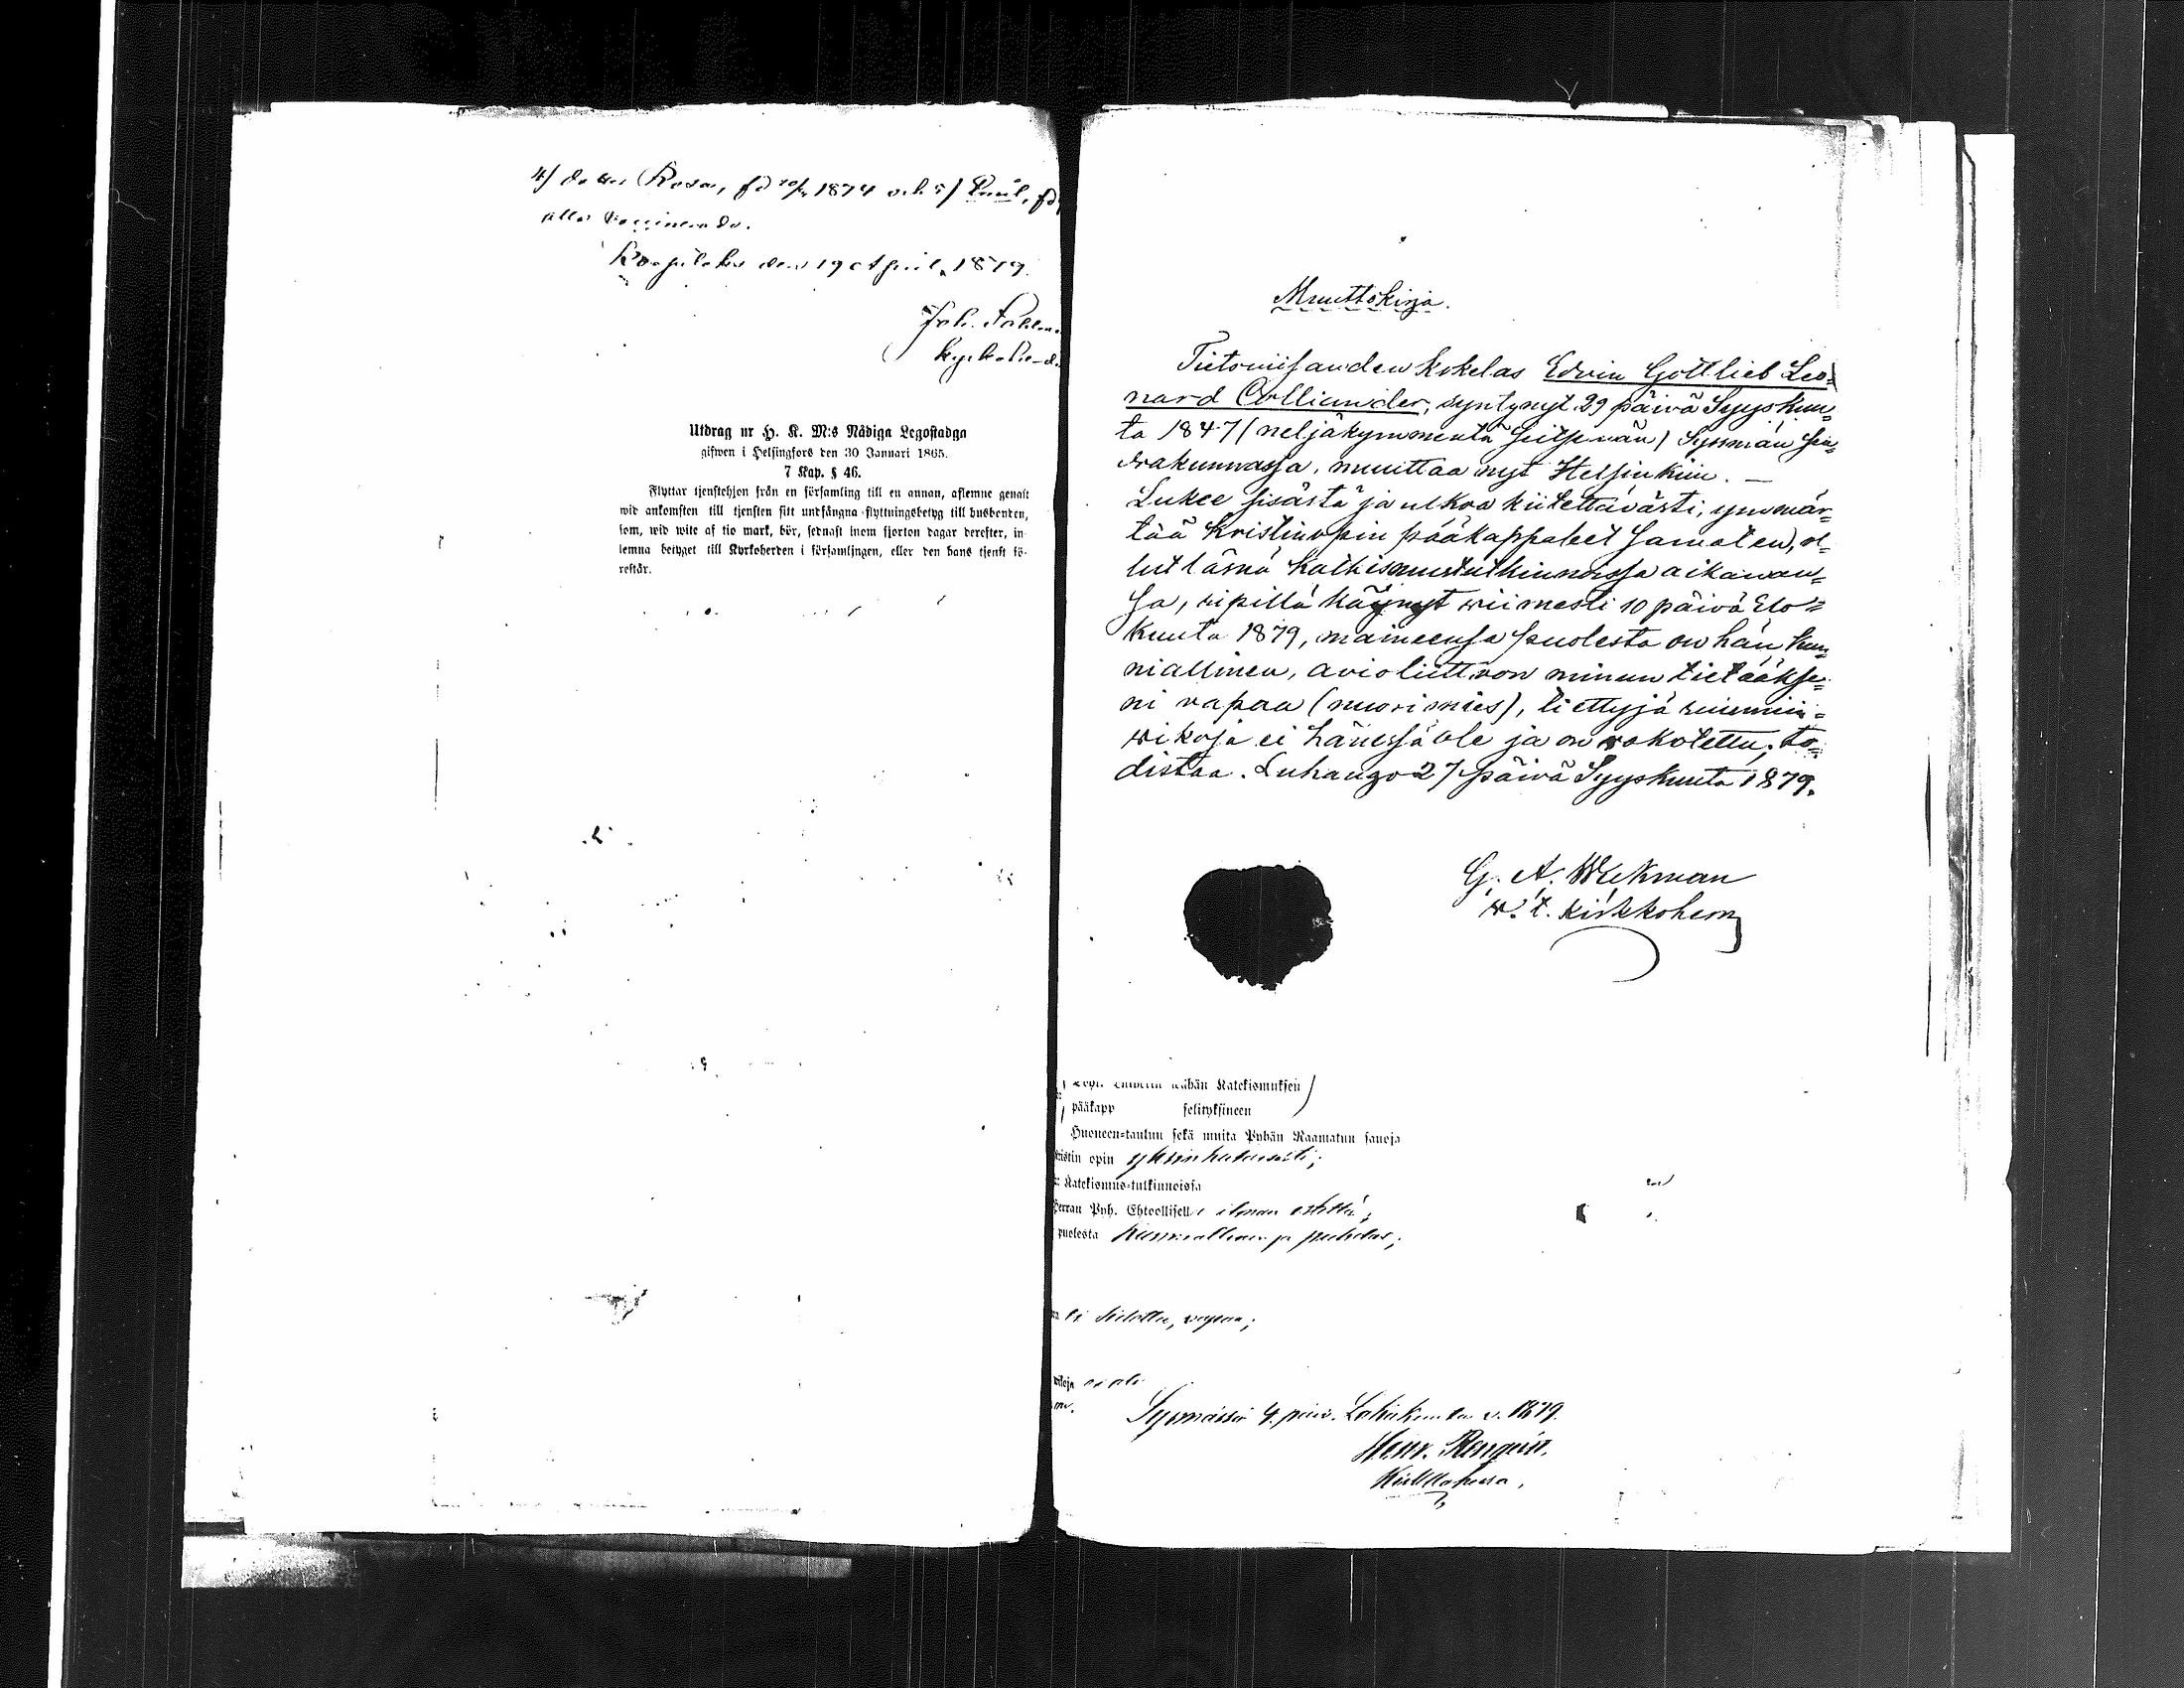 4) dotter Rosa, fd 20/ 1874 och 5) Paul, fd
alla vaccinerade.
den 19 April 1879.
Joh.
Kyrkoherde
Utdrag ur H. K. M:s Nådiga Legostadga
gifwen i Helsingfors den 30 Januari 1865.
7 Kap. § 46.
Flyttar tjenstehjon från en församling till en annan, aflemne genast
wid ankomsten till tjensten sitt undfångna flyttningsbetyg till husbonden,
som, wid wite af tio mark, bör, sednast inom fjorton dagar derefter, in-
lemna betyget till Kyrkoherden i församlingen, eller den hans tjenst fö-
restår.
Muuttokirja.
Tietoniisanden kokelas Edvin Gottlieb Leo=
nard Colliander, syntynyt 29 päivä Syyskuu=
ta 1847 (neljäkymmentä seitsemän) Sysmän seu=
rakunnassa, muuttaa nyt Helsinkiin. —
Lukee sisästä ja ulkoa kiitettävästi, ymmär=
tää kristinopin pääkappaleet samaten, ol=
lut läsnä katkismustutkinnossa aikanan=
sa, ripillä käynyt wiimesti 10 päivä Elo=
kuuta 1879, maineensa puolesta on hän kun=
niallinen, avioliittoon minun tietääkse=
ni vapaa (nuorimies), tiettyjä ruumiin=
wikoja ei hänessä ole ja on rokotettu; to=
distaa. Luhanga 27 päivä Syyskuuta 1879.
G. A. Wikman
w. t. kirkkoherra
Katekismuksen
pääkapp selityksineen
Huoneen=taulun sekä muita Pyhän Raamatun sanoja
ristin opin yksinkertaisesti;
Katekismus=tutkinnoissa
Herran Pyh. Ehtoollisell e ilman estettä;
puolesta kunniallinen ja puhdas;
ei sidottu, vapaa;
wikoja ei ole
Sysmässä 4. päiv. Lokakuuta v. 1879.
Henr. Renqvist.
Kirkkoherra.